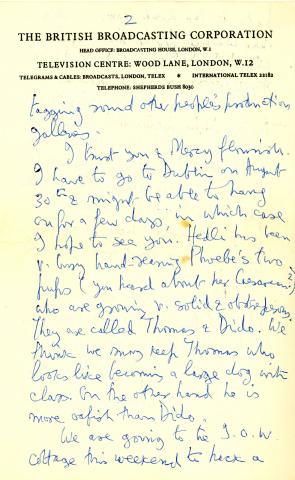 2
THE BRITISH BROADCASTING CORPORATION
HEAD OFFICE: BROADCASTING HOUSE, LONDON, W.1
TELEVISION CENTRE: WOOD LANE, LONDON, W.12
TELEGRAMS & CABLES: BROADCASTS, LONDON, TELEX * INTERNATIONAL TELEX 22182
TELEPHONE: SHEPHERDS BUSH 8030
tagging round other people's production
galleries.
I trust you & Mercy flourish.
I have to go to Dublin on August
30th & might be able to hang
on for a few days, in which case
I hope to see you. Hedli has been
v. busy hand-rearing Phoebe's two
pups (you heard about her Caesarean?)
who are growing v. solid &
They are called Thomas & Dido. We
think we may keep Thomas who
looks like becoming a large dog with
class. On the other hand he is
more oafish than Dido.
We are going to the I.O.W.
cottage this weekend to have a